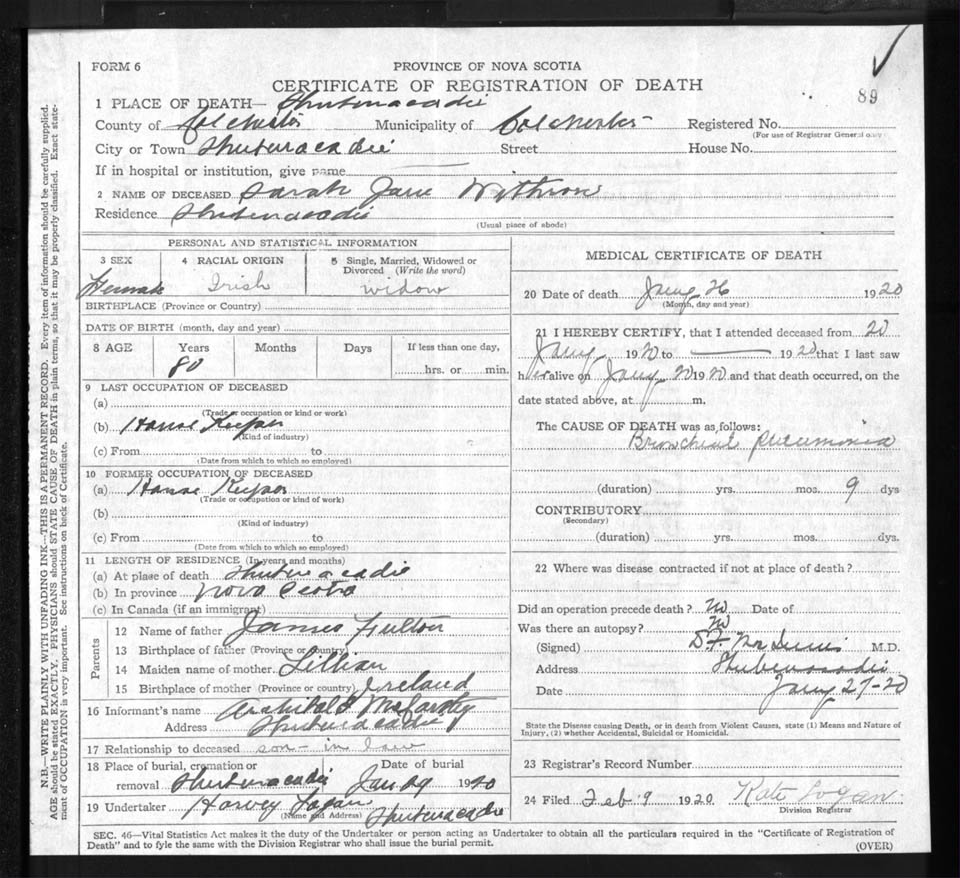 FORM 6
PROVINCE OF NOVA SCOTIA
CERTIFICATE OF REGISTRATION OF DEATH
89
1 PLACE OF DEATH— Shubenacadie
County of Colchester Municipality of Colchester Registered No.
(For use of Registrar General only)
City or Town Shubenacadie Street House No.
If in hospital or institution, give name
2 NAME OF DECEASED Sarah Jane Withrow
Residence Shubenacadie
(Usual place of abode)
PERSONAL AND STATISTICAL INFORMATION
3 SEX 4 RACIAL ORIGIN 5 Single, Married, Widowed or Divorced (Write the word)
Female Irish widow
BIRTHPLACE (Province or Country)
DATE OF BIRTH (month, day and year)
8 AGE Years Months Days If less than one day,
80 hrs. or min.
9 LAST OCCUPATION OF DECEASED
(a)
(Trade or occupation or kind or work)
(b) House Keeper
(Kind of industry)
(c) From to
(Date from which to which so employed)
10 FORMER OCCUPATION OF DECEASED
(a) House Keeper
(Trade or occupation or kind of work)
(b)
(Kind of industry)
(c) From to
(Date from which to which so employed)
11 LENGTH OF RESIDENCE (In years and months)
(a) At place of death Shubenacadie
(b) In province Nova Scotia
(c) In Canada (if an immigrant)
Parents
12 Name of father James Fulton
13 Birthplace of father (Province or country)
14 Maiden name of mother Lillian
15 Birthplace of mother (Province or country) Ireland
16 Informant's name Archibald
Address Shubenacadie
17 Relationship to deceased son-in law
18 Place of burial, cremation or Date of burial
removal Shubenacadie Jan 29 1920
19 Undertaker Harvey Logan Shubenacadie
(Name and Address)
MEDICAL CERTIFICATE OF DEATH
20 Date of death Jany 26 1920
(Month, day and year)
21 I HEREBY CERTIFY, that I attended deceased from 20
Jany 1920 to 1920 that I last saw
her alive on Jany 20 1920 and that death occurred, on the
date stated above, at m.
The CAUSE OF DEATH was as follows:
Bronchial Pneumonia
(duration) yrs. mos. 9 dys
CONTRIBUTORY
(Secondary)
(duration) yrs. mos. dys.
22 Where was disease contracted if not at place of death?
Did an operation precede death? No Date of
Was there an autopsy? No
(Signed) M.D.
Address Shubenacadie
Date Jany 27-20
State the Disease causing Death, or in death from Violent Causes, state (1) Means and Nature of
Injury, (2) whether Accidental, Suicidal or Homicidal.
23 Registrar's Record Number
24 Filed Feb 9 1920 Kate Logan
Division Registrar
SEC. 46—Vital Statistics Act makes it the duty of the Undertaker or person acting as Undertaker to obtain all the particulars required in the "Certificate of Registration of
Death" and to fyle the same with the Division Registrar who shall issue the burial permit.
(OVER)
N.B.—WRITE PLAINLY WITH UNFADING INK—THIS IS A PERMANENT RECORD. Every item of information should be carefully supplied.
AGE should be stated EXACTLY. PHYSICIANS should STATE CAUSE OF DEATH in plain terms, so that it may be properly classified. Exact state-
ment of OCCUPATION is very important. See instructions on back of Certificate.